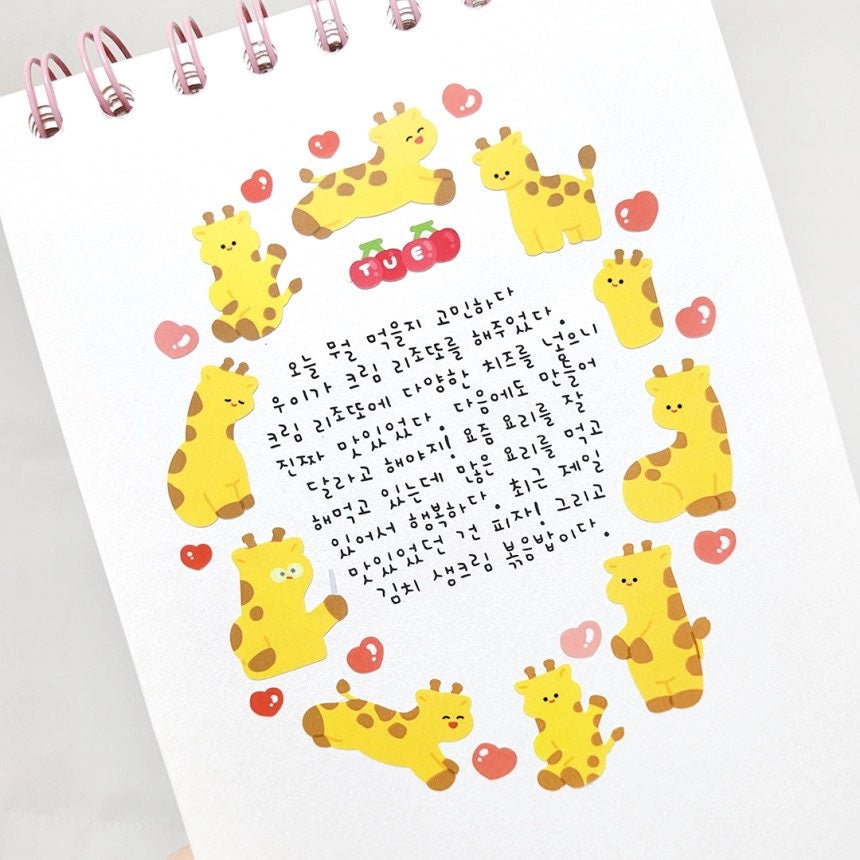 TUE
오늘 뭘 먹을지 고민하다
우이가 크림 리조또를 해주었다.
크림 리조또에 다양한 치즈를 넣으니
진짜 맛있었다. 다음에도 만들어
달라고 해야지! 요즘 요리를 잘
해먹고 있는데 많은 요리를 먹고
있어서 행복하다. 최근 제일
맛있었던 건 피자! 그리고
김치 생크림 볶음밥이다.